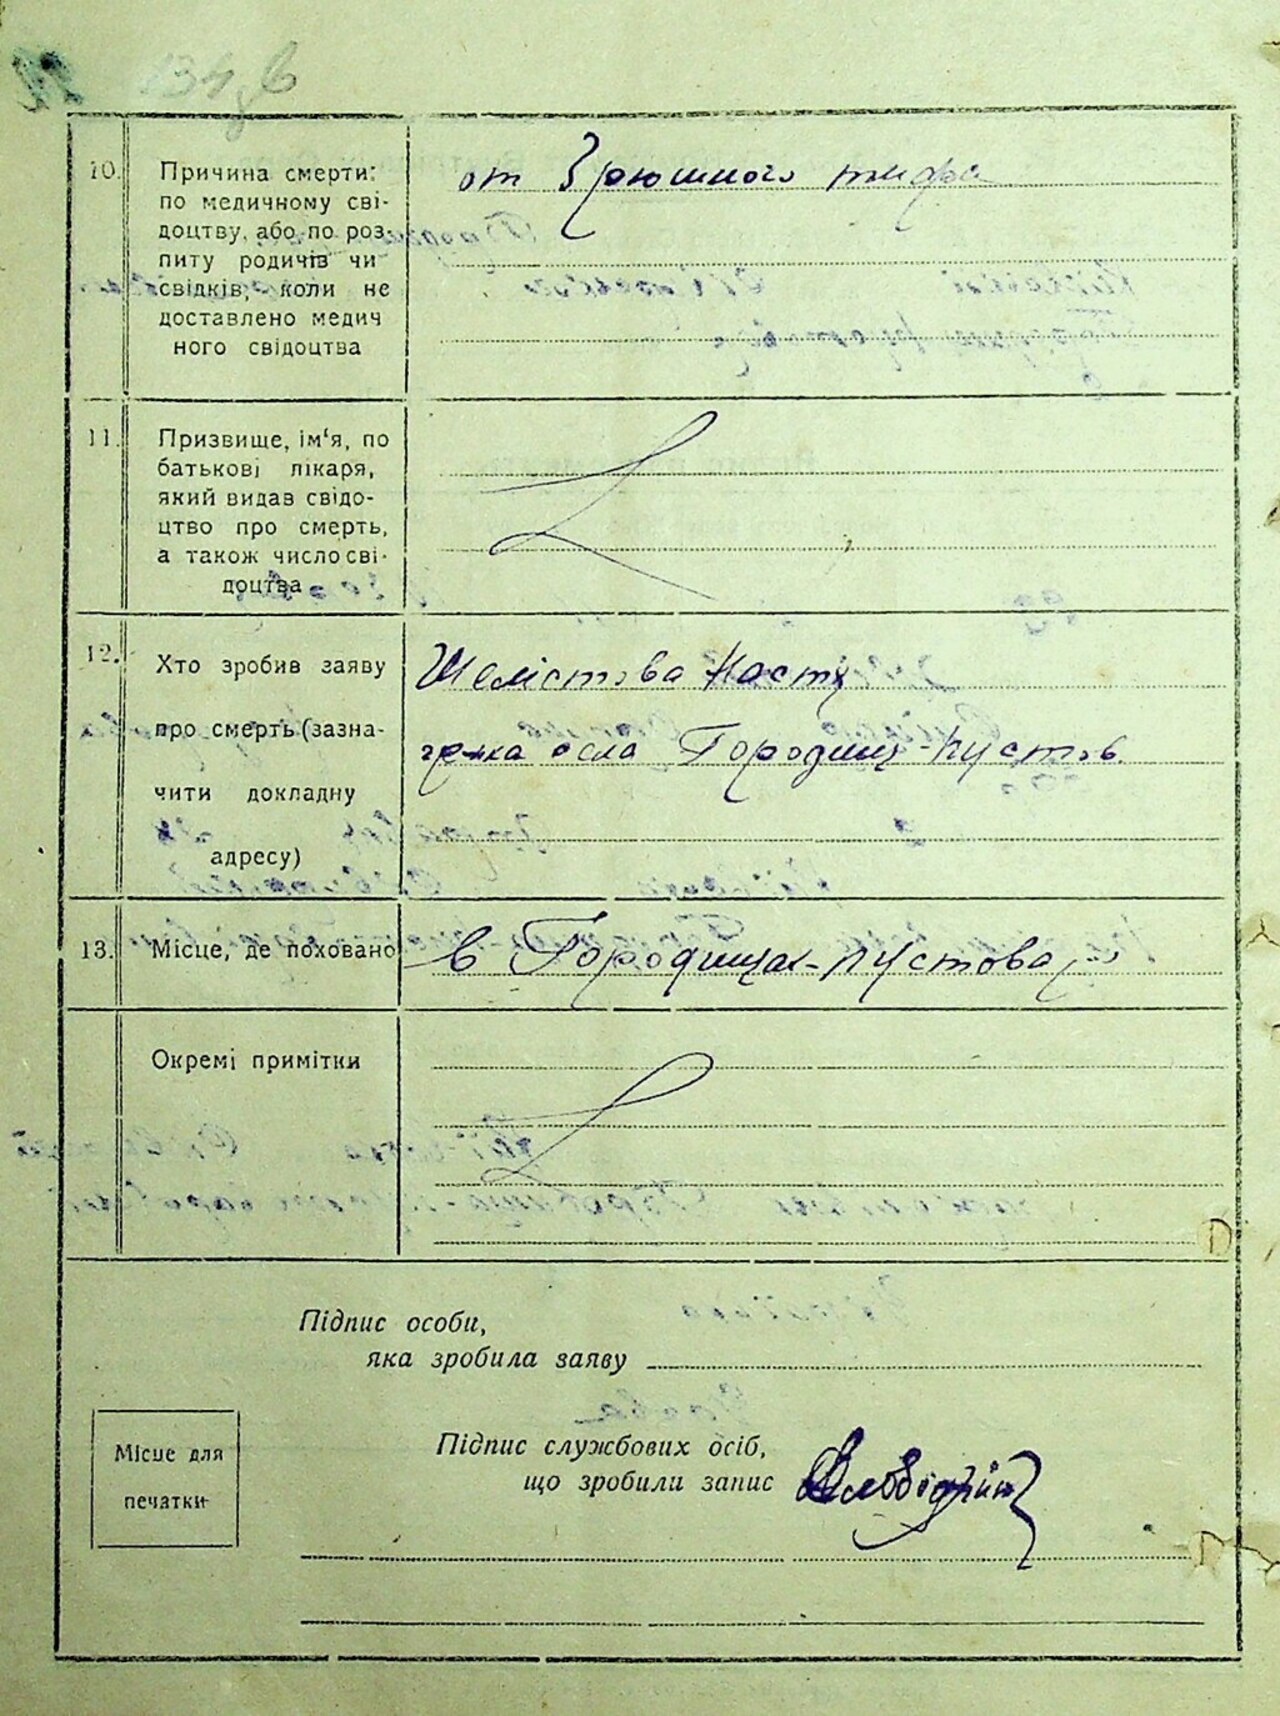 134
10. Причина смерти:
по медичному сві-
доцтву, або по роз-
питу родичів чи
свідків, коли не
доставлено медич
ного свідоцтва
от Зрюшного тифа
11. Призвище, ім'я, по
батькові лікаря,
який видав свідо-
цтво про смерть,
а також число сві-
доцтва
12. Хто зробив заяву
про смерть (зазна-
чити докладну
адресу)
Шелістова Настя
Городищ-пустов.
13. Місце, де поховано
в Городищах-пустова
Окремі примітки
Підпис особи,
яка зробила заяву
Місце для
печатки
Підпис службових осіб,
що зробили запис